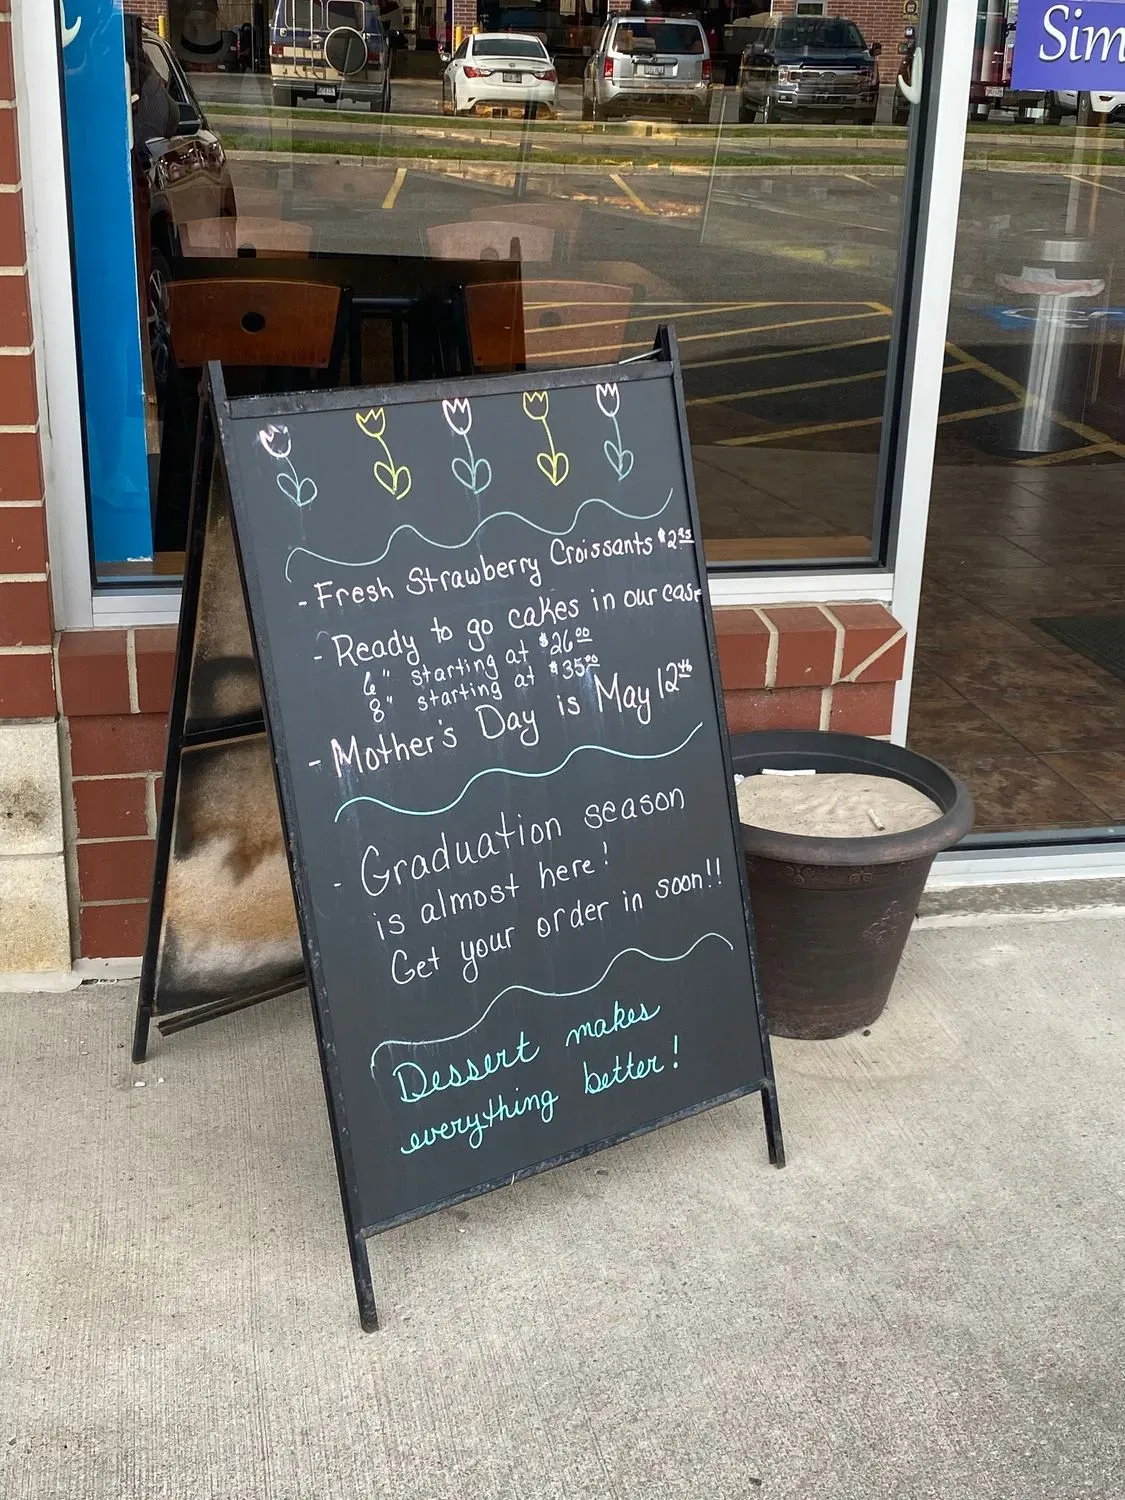 - Fresh Strawberry Croissants $2.95
- Ready to go cakes in our case
6" starting at $26.00
8" starting at $35.00
- Mother's Day is May 12th
- Graduation season
is almost here!
Get your order in soon!!
Dessert makes
everything better!
Sim